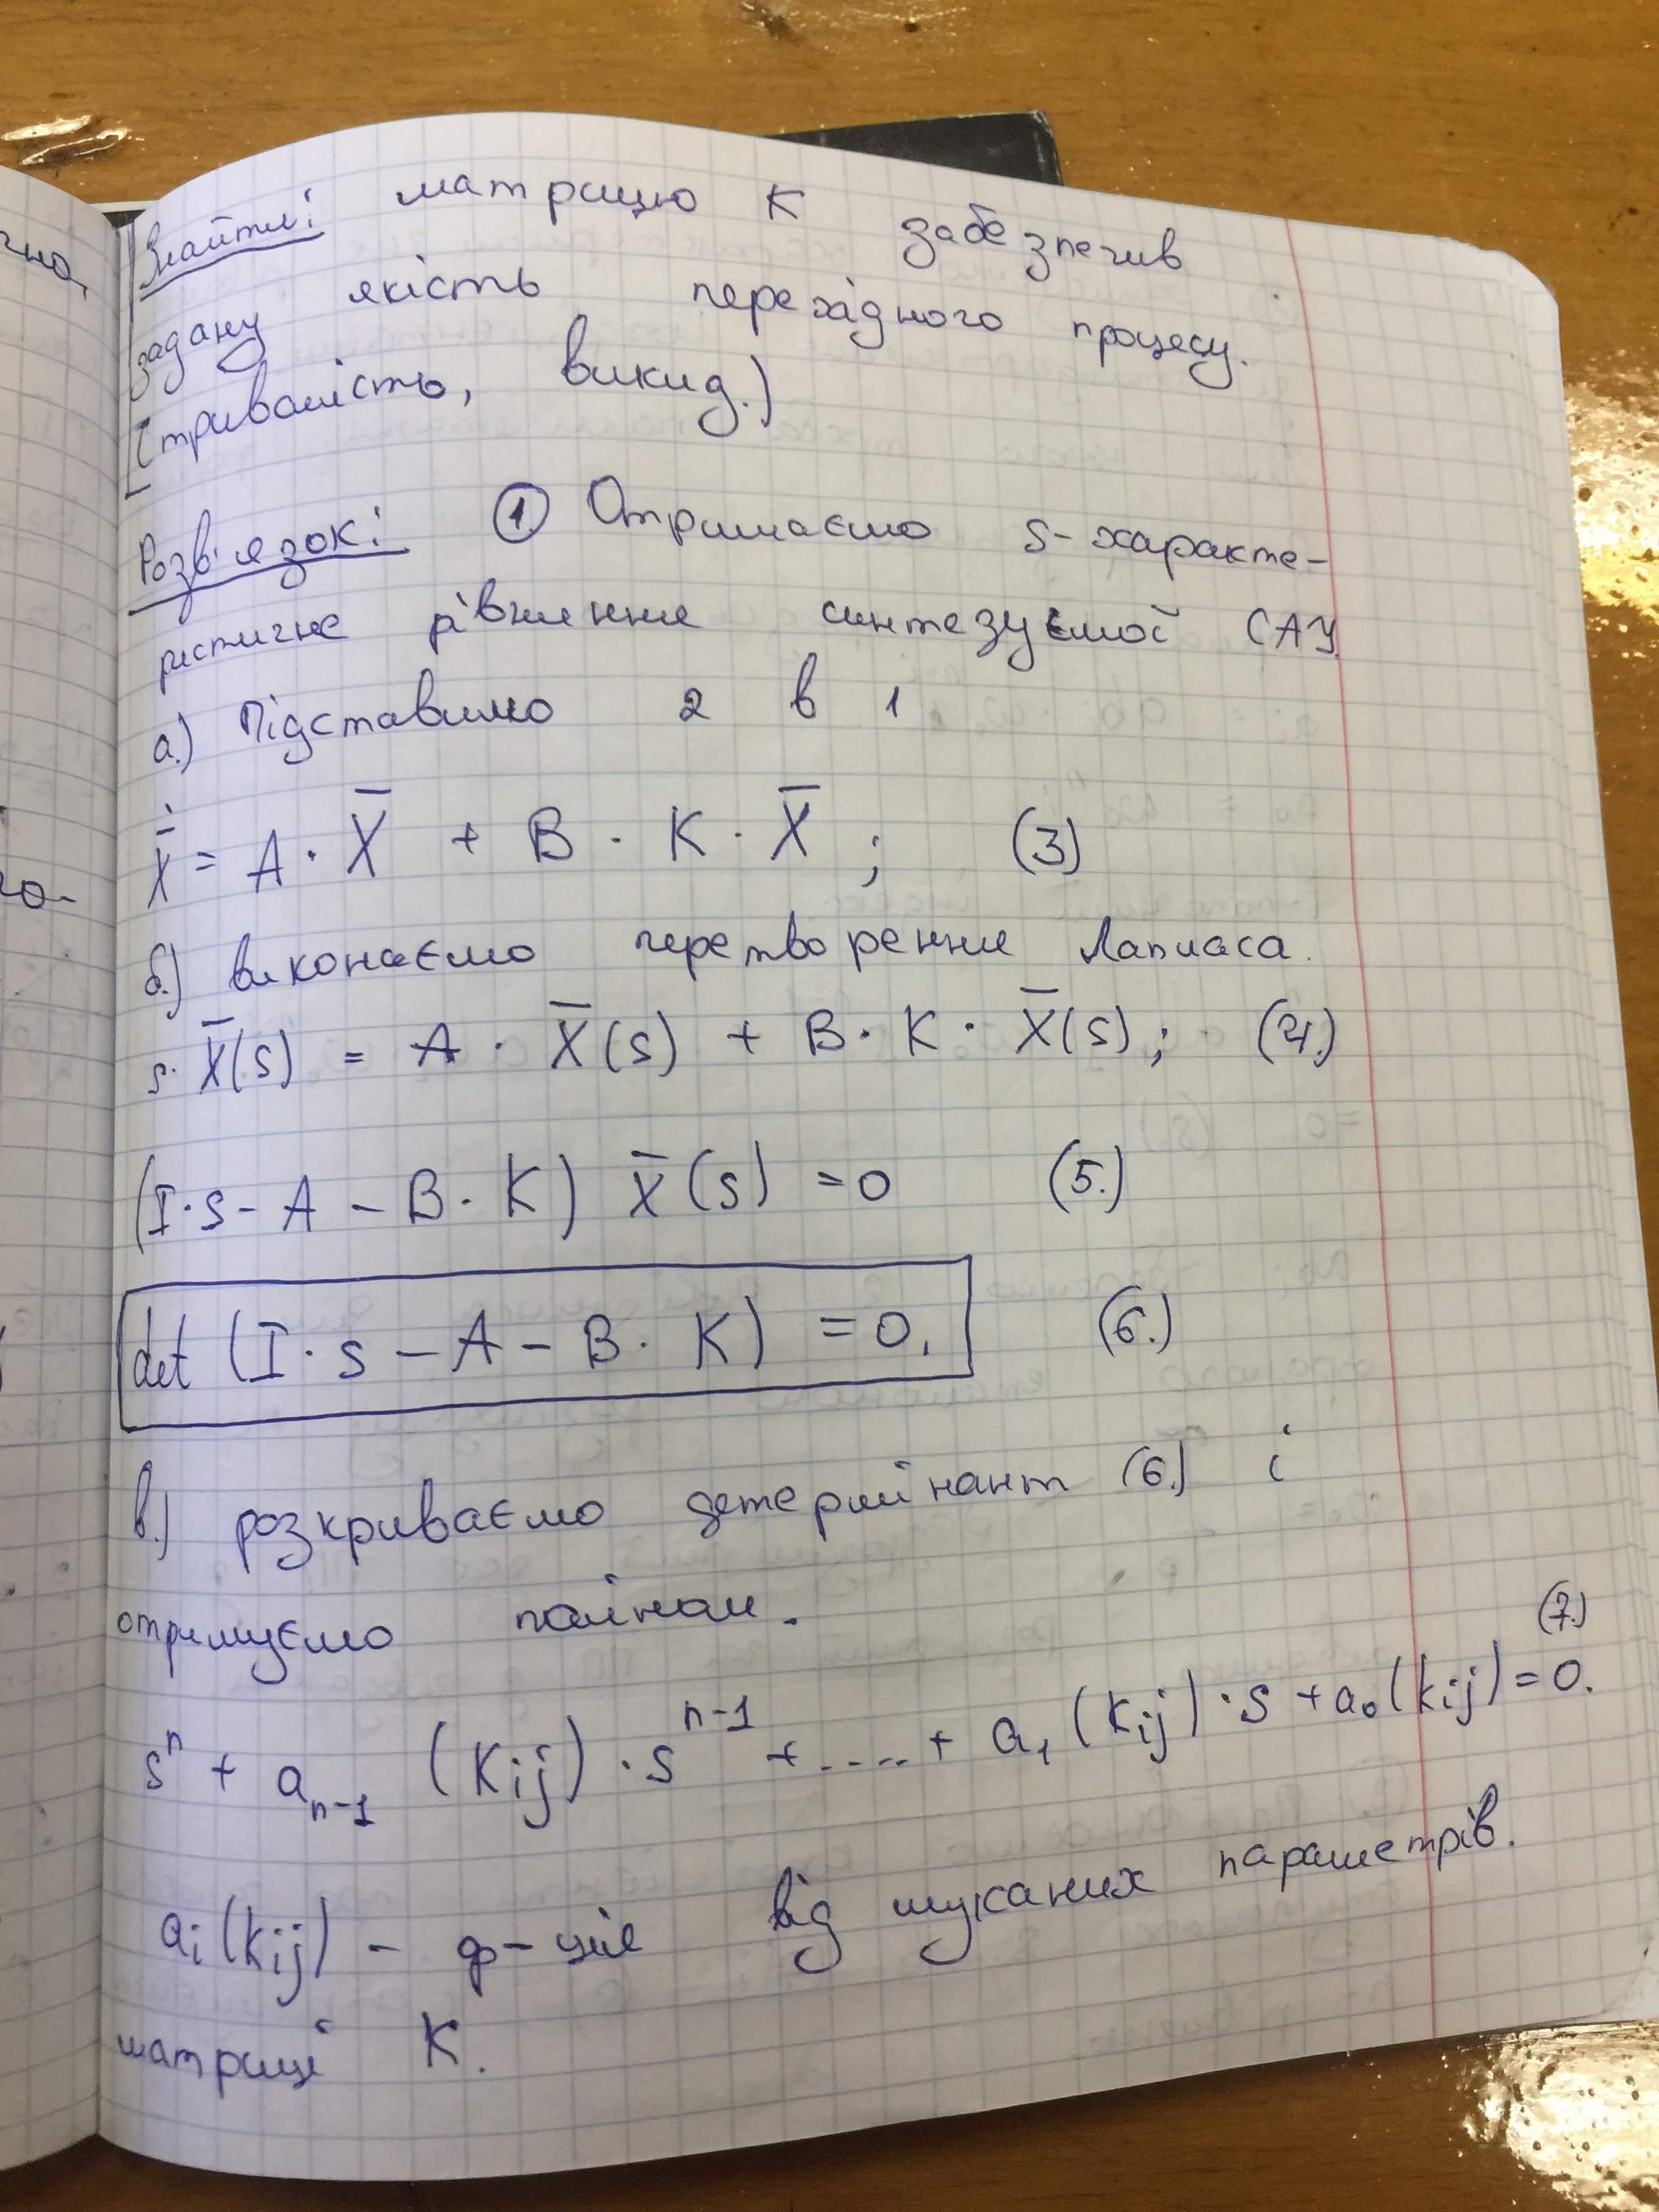 Знайти: матрицю К забезпечив
задану якість перехідного процесу.
(тривалість, викид.)
Розв'язок: ① Отримаємо s-характе-
ристичне рівняння синтезуємої САУ.
а.) Підставимо 2 в 1
Ẋ̄ = A · X̄ + B · K · X̄ ; (3)
б.) виконаємо перетворення Лапласа.
s · X̄(s) = A · X̄(s) + B · K · X̄(s) ; (4.)
(I·s - A - B · K) X̄(s) = 0 (5.)
det (I · s - A - B · K) = 0. (6.)
в.) розкриваємо детермінант (6.) і
отримуємо поліном.
(7.)
sⁿ + aₙ₋₁ (Kij) · sⁿ⁻¹ + .... + a₁ (Kij) · s + a₀ (kij) = 0.
ai (kij) - ф-ція від шуканих параметрів.
матриці К.
чна,
го-